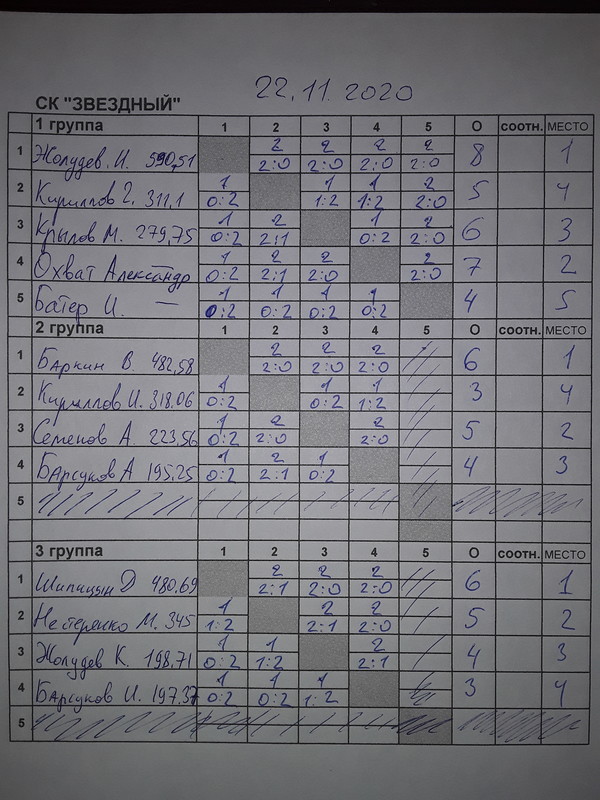 22.11.2020
СК "ЗВЕЗДНЫЙ"
1 группа 1 2 3 4 5 О соотн. МЕСТО
1 Жолудев. И. 590,51 2 2 2 2 8 1
2:0 2:0 2:0 2:0
2 Кириллов 311,1 1 1 1 2 5 4
0:2 1:2 1:2 2:0
3 Крылов М. 279,75 1 2 1 2 6 3
0:2 2:1 0:2 2:0
4 Охват Александр 1 2 2 2 7 2
0:2 2:1 2:0 2:0
5 Батер И. — 1 1 1 1 4 5
0:2 0:2 0:2 0:2
2 группа 1 2 3 4 5 О соотн. МЕСТО
1 Баркин В. 482,58 2 2 2 6 1
2:0 2:0 2:0
2 Кириллов И. 318.06 1 1 1 3 4
0:2 0:2 1:2
3 Семенов А. 223,56 1 2 2 5 2
0:2 2:0 2:0
4 Барсуков А 195.25 1 2 1 4 3
0:2 2:1 0:2
5
3 группа 1 2 3 4 5 О соотн. МЕСТО
1 Шипицын Д 480.69 2 2 2 6 1
2:1 2:0 2:0
2 Нестеренко М. 345 1 2 2 5 2
1:2 2:1 2:0
3 Жолудев К. 198,71 1 1 2 4 3
0:2 1:2 2:1
4 Барсуков И. 197.37 1 1 1 3 4
0:2 0:2 1:2
5